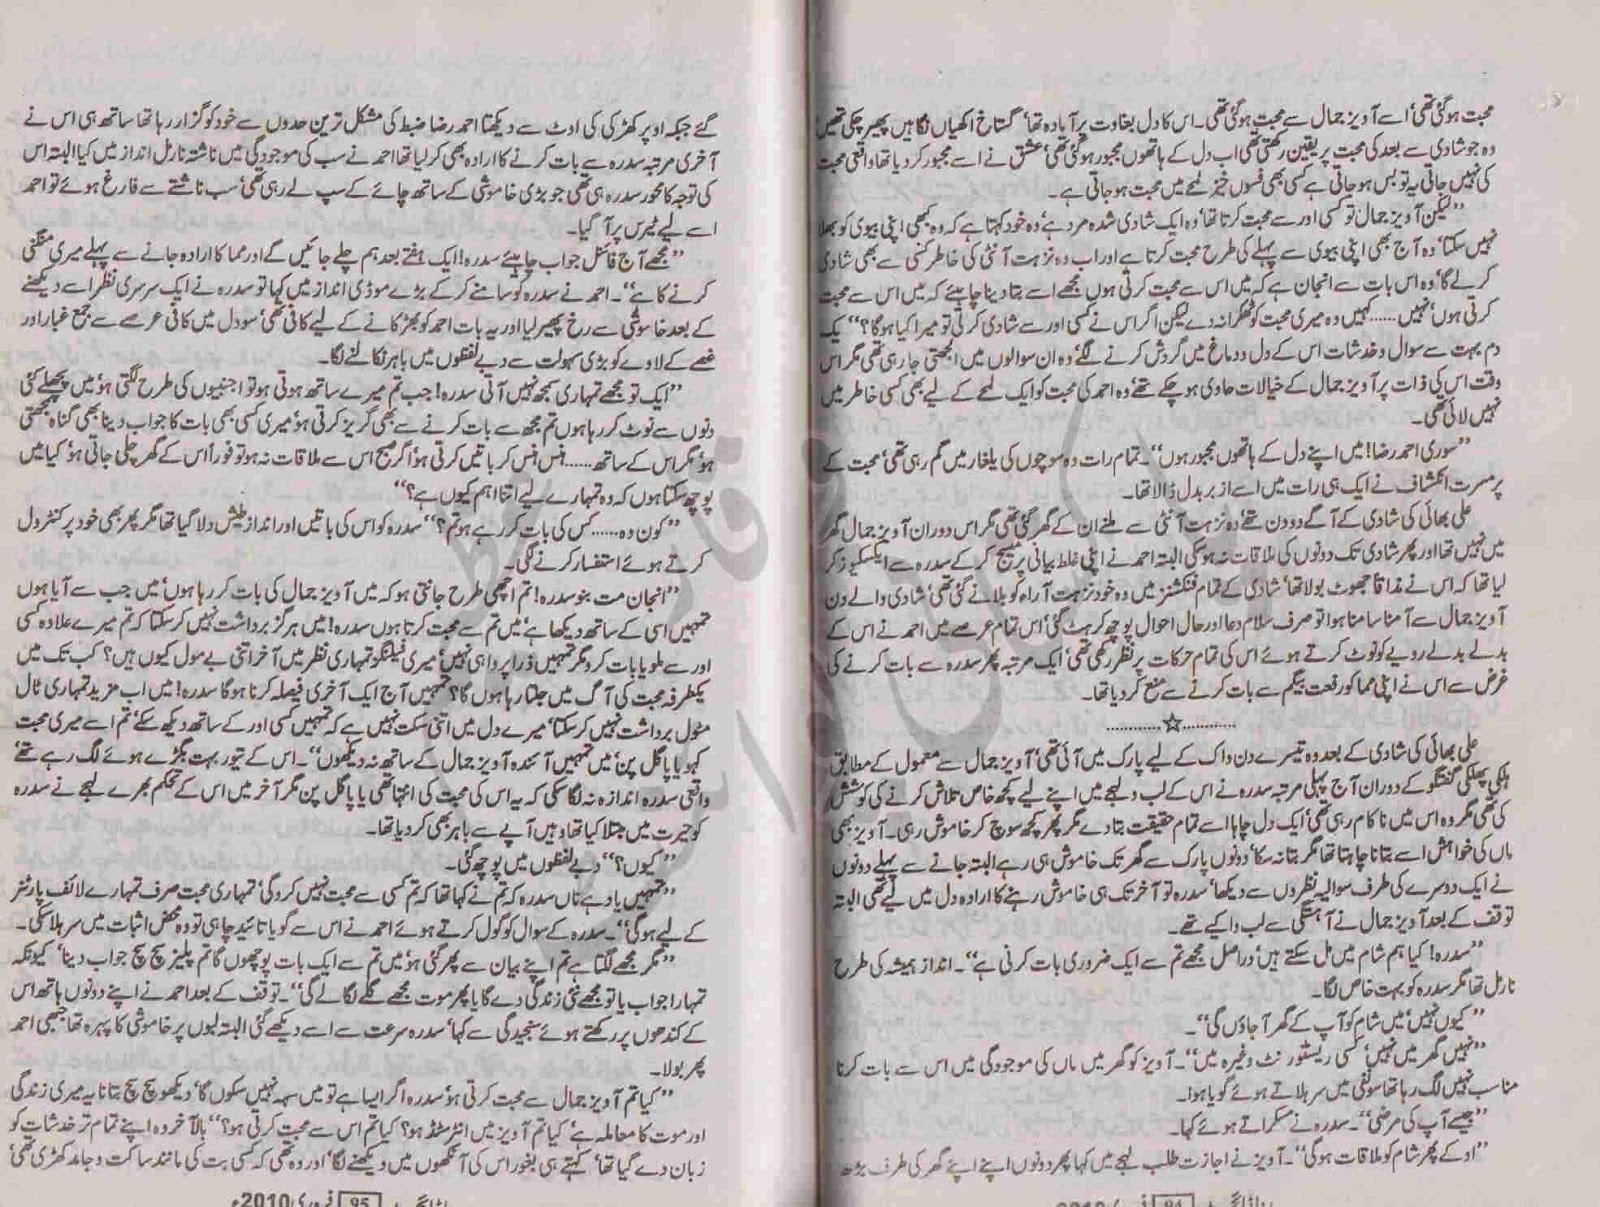 محبت ہوگئی تھی، اسے آویز جمال سے محبت ہوگئی تھی۔ اس کا دل بغاوت پر آمادہ تھا، گستاخ اکھیاں نگاہیں پھیر چکی تھیں
وہ جو شادی سے بعد کی محبت پر یقین رکھتی تھی اب دل کے ہاتھوں مجبور ہوگئی تھی، عشق نے اسے مجبور کر دیا تھا واقعی محبت
کی نہیں جاتی یہ تو بس ہو جاتی ہے کسی بھی فسوں خیز لمحے میں محبت ہو جاتی ہے۔
”لیکن آویز جمال تو کسی اور سے محبت کرتا تھا، وہ ایک شادی شدہ مرد ہے، وہ خود کہتا ہے کہ وہ کبھی اپنی بیوی کو بھلا
نہیں سکتا، وہ آج بھی اپنی بیوی سے پہلے کی طرح محبت کرتا ہے اور اب وہ نزہت آنٹی کی خاطر کسی سے بھی شادی
کرلے گا، وہ اس بات سے انجان ہے کہ میں اس سے محبت کرتی ہوں مجھے اسے بتا دینا چاہئے کہ میں اس سے محبت
کرتی ہوں، نہیں ...... کہیں وہ میری محبت کو ٹھکرا نہ دے لیکن اگر اس نے کسی اور سے شادی کرلی تو میرا کیا ہوگا؟“ یک
دم بہت سے سوال و خدشات اس کے دل و دماغ میں گردش کرنے لگے، وہ ان سوالوں میں الجھتی جا رہی تھی مگر اس
وقت اس کی ذات پر آویز جمال کے خیالات حاوی ہو چکے تھے، وہ احمد کی محبت کو ایک لمحے کے لیے بھی کسی خاطر میں
نہیں لائی تھی۔
”سوری احمد رضا! میں اپنے دل کے ہاتھوں مجبور ہوں“۔ تمام رات وہ سوچوں کی یلغار میں گم رہی تھی، محبت کے
پر مسرت انکشاف نے ایک ہی رات میں اسے از بر بدل ڈالا تھا۔
علی بھائی کی شادی کے آگے دو دن تھے، وہ نزہت آنٹی سے ملنے ان کے گھر گئی تھی مگر اس دوران آویز جمال گھر
میں نہیں تھا اور پھر شادی تک دونوں کی ملاقات نہ ہو سکی البتہ احمد نے اپنی غلط بیانی پر میسج کر کے سدرہ سے ایکسکیوز کر
لیا تھا کہ اس نے مذاقاً جھوٹ بولا تھا، شادی کے تمام فنکشنز میں وہ خود نزہت آراء کو بلانے گئی تھی، شادی والے دن
آویز جمال سے آمنا سامنا ہوا تو صرف سلام دعا اور حال احوال پوچھ کر ہٹ گئی، اس تمام عرصے میں احمد نے اس کے
بدلے بدلے رویے کو نوٹ کرتے ہوئے اس کی تمام حرکات پر نظر رکھی تھی، ایک مرتبہ پھر سدرہ سے بات کرنے کی
غرض سے اس نے اپنی مما کو رفعت بیگم سے بات کرنے سے منع کر دیا تھا۔
............☆............
علی بھائی کی شادی کے بعد وہ تیسرے دن واک کے لیے پارک میں آئی تھی، آویز جمال سے معمول کے مطابق
ہلکی پھلکی گفتگو کے دوران آج پہلی مرتبہ سدرہ نے اس کے لب و لہجے میں اپنے لیے کچھ خاص تلاش کرنے کی کوشش
کی تھی مگر وہ اس میں ناکام رہی تھی، ایک دل چاہا اسے تمام حقیقت بتا دے مگر پھر کچھ سوچ کر خاموش رہی۔ آویز بھی
ماں کی خواہش اسے بتانا چاہتا تھا مگر بتا نہ سکا، دونوں پارک سے گھر تک خاموش ہی رہے البتہ جانے سے پہلے دونوں
نے ایک دوسرے کی طرف سوالیہ نظروں سے دیکھا، سدرہ تو آخر تک ہی خاموش رہنے کا ارادہ دل میں لیے تھی البتہ
توقف کے بعد آویز جمال نے آہستگی سے لب وا کیے تھے۔
”سدرہ! کیا ہم شام میں مل سکتے ہیں، دراصل مجھے تم سے ایک ضروری بات کرنی ہے“۔ انداز ہمیشہ کی طرح
نارمل تھا مگر سدرہ کو بہت خاص لگا۔
”کیوں نہیں، میں شام کو آپ کے گھر آ جاؤں گی“۔
”نہیں گھر میں نہیں، کسی ریسٹورنٹ وغیرہ میں“۔ آویز کو گھر میں ماں کی موجودگی میں اس سے بات کرنا
مناسب نہیں لگ رہا تھا سو نفی میں سر ہلاتے ہوئے گویا ہوا۔
”جیسے آپ کی مرضی“۔ سدرہ نے مسکراتے ہوئے کہا۔
”اوکے پھر شام کو ملاقات ہوگی“۔ آویز نے اجازت طلب لہجے میں کہا پھر دونوں اپنے اپنے گھر کی طرف بڑھ
94
گئے جبکہ اوپر کھڑکی کی اوٹ سے دیکھتا احمد رضا ضبط کی مشکل ترین حدوں سے خود کو گزار رہا تھا ساتھ ہی اس نے
آخری مرتبہ سدرہ سے بات کرنے کا ارادہ بھی کر لیا تھا احمد نے سب کی موجودگی میں ناشتہ نارمل انداز میں کیا البتہ اس
کی توجہ کا محور سدرہ ہی تھی جو بڑی خاموشی کے ساتھ چائے کے سپ لے رہی تھی، سب ناشتے سے فارغ ہوئے تو احمد
اسے لیے ٹیرس پر آ گیا۔
”مجھے آج فائنل جواب چاہئے سدرہ! ایک ہفتے بعد ہم چلے جائیں گے اور مما کا ارادہ جانے سے پہلے میری منگنی
کرنے کا ہے“۔ احمد نے سدرہ کو سامنے کر کے بڑے موڈی انداز میں کہا تو سدرہ نے ایک سرسری نظر اسے دیکھنے
کے بعد خاموشی سے رخ پھیر لیا اور یہ بات احمد کو بھڑکانے کے لیے کافی تھی، سو دل میں کافی عرصے سے جمع غبار اور
غصے کے لاوے کو بڑی سہولت سے دبے لفظوں میں باہر نکالنے لگا۔
”ایک تو مجھے تمہاری سمجھ نہیں آتی سدرہ! جب تم میرے ساتھ ہوتی ہو تو اجنبیوں کی طرح لگتی ہو، میں پچھلے کئی
دنوں سے نوٹ کر رہا ہوں تم مجھ سے بات کرنے سے بھی گریز کرتی ہو، میری کسی بھی بات کا جواب دینا بھی گناہ سمجھتی
ہو، مگر اس کے ساتھ ...... ہنس ہنس کر باتیں کرتی ہو، اگر صبح اس سے ملاقات نہ ہو تو فوراً اس کے گھر چلی جاتی ہو، کیا میں
پوچھ سکتا ہوں کہ وہ تمہارے لیے اتنا اہم کیوں ہے؟“
”کون وہ ...... کس کی بات کر رہے ہو تم؟“ سدرہ کو اس کی باتیں اور انداز طیش دلا گیا تھا مگر پھر بھی خود پر کنٹرول
کرتے ہوئے استفسار کرنے لگی۔
”انجان مت بنو سدرہ! تم اچھی طرح جانتی ہو کہ میں آویز جمال کی بات کر رہا ہوں، میں جب سے آیا ہوں
تمہیں اسی کے ساتھ دیکھا ہے، میں تم سے محبت کرتا ہوں سدرہ! میں ہرگز برداشت نہیں کر سکتا کہ تم میرے علاوہ کسی
اور سے ملو یا بات کرو مگر تمہیں ذرا پرواہی نہیں، میری فیلنگز تمہاری نظر میں آخر اتنی بے مول کیوں ہیں؟ کب تک میں
یکطرفہ محبت کی آگ میں جلتا رہا ہوں گا؟ تمہیں آج ایک آخری فیصلہ کرنا ہوگا سدرہ! میں اب مزید تمہاری ٹال
مٹول برداشت نہیں کر سکتا، میرے دل میں اتنی سکت نہیں ہے کہ تمہیں کسی اور کے ساتھ دیکھ سکے، تم اسے میری محبت
کہو یا پاگل پن، میں تمہیں آئندہ آویز جمال کے ساتھ نہ دیکھوں“۔ اس کے تیور بہت بگڑے ہوئے لگ رہے تھے
واقعی سدرہ اندازہ نہ لگا سکی کہ یہ اس کی محبت کی انتہا تھی یا پاگل پن مگر آخر میں اس کے تحکم بھرے لہجے نے سدرہ
کو حیرت میں مبتلا کیا تھا وہیں آپے سے باہر بھی کر دیا تھا۔
”کیوں؟“ دبے لفظوں میں پوچھ گئی۔
”تمہیں یاد ہے ناں سدرہ کہ تم نے کہا تھا کہ تم کسی سے محبت نہیں کرو گی، تمہاری محبت صرف تمہارے لائف پارٹنر
کے لیے ہوگی“۔ سدرہ کے سوال کو گول کرتے ہوئے احمد نے اس سے گویا تائید چاہی تو وہ محض اثبات میں سر ہلا سکی۔
”مگر مجھے لگتا ہے تم اپنے بیان سے پھر گئی ہو، میں تم سے ایک بات پوچھوں گا تم پلیز سچ سچ جواب دینا، کیونکہ
تمہارا جواب یا تو مجھے نئی زندگی دے گا یا پھر موت مجھے گلے لگا لے گی“۔ توقف کے بعد احمد نے اپنے دونوں ہاتھ اس
کے کندھوں پر رکھتے ہوئے سنجیدگی سے کہا، سدرہ سرعت سے اسے دیکھے گئی البتہ لبوں پر خاموشی کا پہرہ تھا جبھی احمد
پھر بولا۔
”کیا تم آویز جمال سے محبت کرتی ہو، سدرہ اگر ایسا ہے تو میں سہہ نہیں سکوں گا، دیکھو سچ سچ بتانا یہ میری زندگی
اور موت کا معاملہ ہے، کیا تم آویز میں انٹرسٹڈ ہو؟ کیا تم اس سے محبت کرتی ہو؟“ بالآخر وہ اپنے تمام تر خدشات کو
زبان دے گیا تھا، کہتے ہی بغور اس کی آنکھوں میں دیکھنے لگا، اور وہ تھی کہ کسی بت کی مانند ساکت و جامد کھڑی تھی،
95 فروری 2010ء